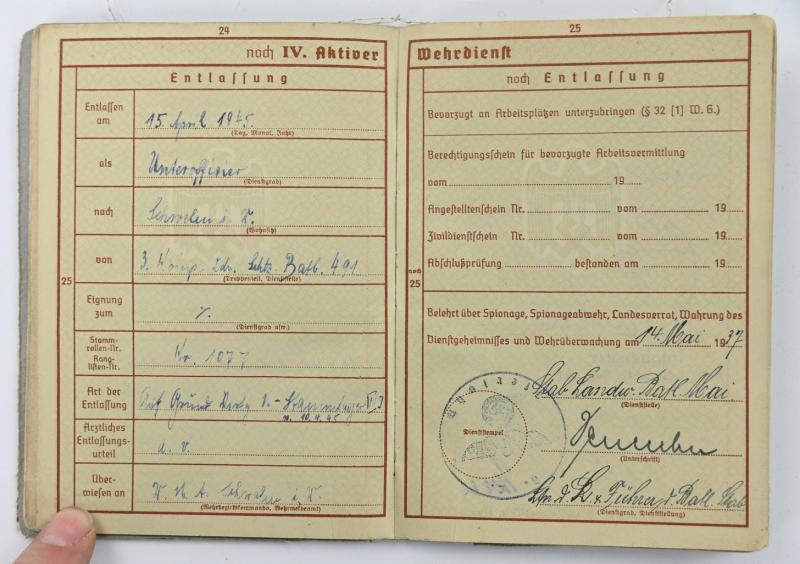 24
noch IV. Aktiver
Entlassung
Entlassen am
15. April 1945.
(Tag, Monat, Jahr)
als
Unteroffizier
(Dienstgrad)
nach
Schwelm i. W.
(Wohnsitz)
von
3. Komp. Ldr. Schtz. Batl. 491
(Truppenteil, Dienststelle)
25
Eignung zum
(Dienstgrad usw.)
Stamm-
rollen-Nr.
Rang-
listen-Nr.
Nr. 1077
Art der Entlassung
Auf Grund
v. 10.4.45
Ärztliches
Entlassungs-
urteil
Über-
wiesen an
W. M. A. Schwelm i. W.
(Wehrbezirkskommando, Wehrmeldeamt)
25
Wehrdienst
noch Entlassung
Bevorzugt an Arbeitsplätzen unterzubringen (§ 32 [1] W. G.)
Berechtigungsschein für bevorzugte Arbeitsvermittlung
vom 19
Angestelltenschein Nr. vom 19
Zivildienstschein Nr. vom 19
Abschlußprüfung bestanden am 19
noch
25
Belehrt über Spionage, Spionageabwehr, Landesverrat, Wahrung des
Dienstgeheimnisses und Wehrüberwachung am 14. Mai 1937
Stab Landw. Batl. Mai
(Dienststelle)
Dienststempel
(Unterschrift)
Ltn. d. L. u. Führer d. Batl. Stab
(Dienstgrad, Dienststellung)